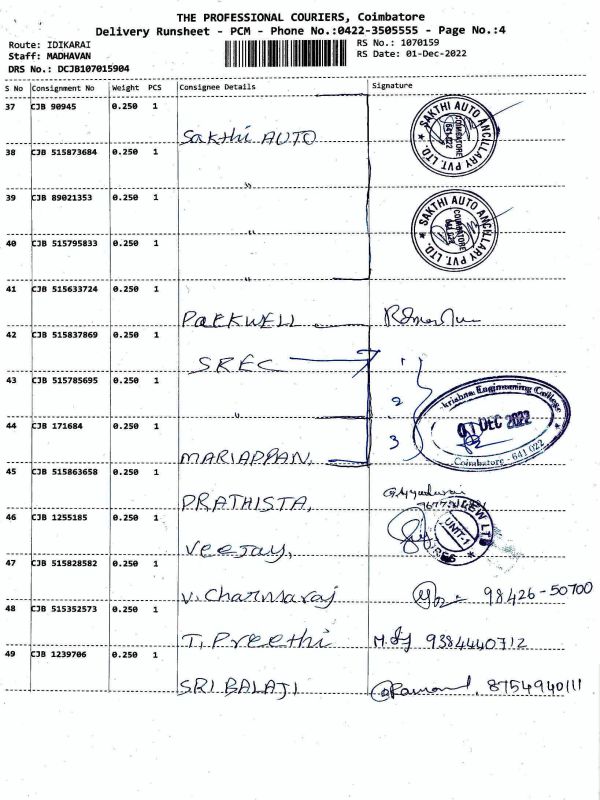 THE PROFESSIONAL COURIERS, Coimbatore
Delivery Runsheet - PCM - Phone No.:0422-3505555 - Page No.:4
Route: IDIKARAI
RS No.: 1070159
Staff: MADHAVAN
RS Date: 01-Dec-2022
DRS No.: DCJB107015904
S No Consignment No Weight PCS Consignee Details Signature
37 CJB 90945 0.250 1
SAKTHI AUTO ANCILLARY PVT. LTD.
COIMBATORE
641 022
Sakthi AUTO
38 CJB 515873684 0.250 1
"
39 CJB 89021353 0.250 1
SAKTHI AUTO ANCILLARY PVT. LTD.
COIMBATORE
641 022
"
40 CJB 515795833 0.250 1
41 CJB 515633724 0.250 1
PackWELL
42 CJB 515837869 0.250 1
SREC 1
43 CJB 515785695 0.250 1
2
krishna Engineering College
01 DEC 2022
Coimbatore - 641 022
"
44 CJB 171684 0.250 1
3
MARIAPPAN,
45 CJB 515863658 0.250 1
PRATHISTA,
46 CJB 1255185 0.250 1
UNIT-1
Veejay,
47 CJB 515828582 0.250 1
V. Charmaraj 98426-50700
48 CJB 515352573 0.250 1
T. Preethi 9384440712
49 CJB 1239706 0.250 1
SRI BALAJI 8754940111